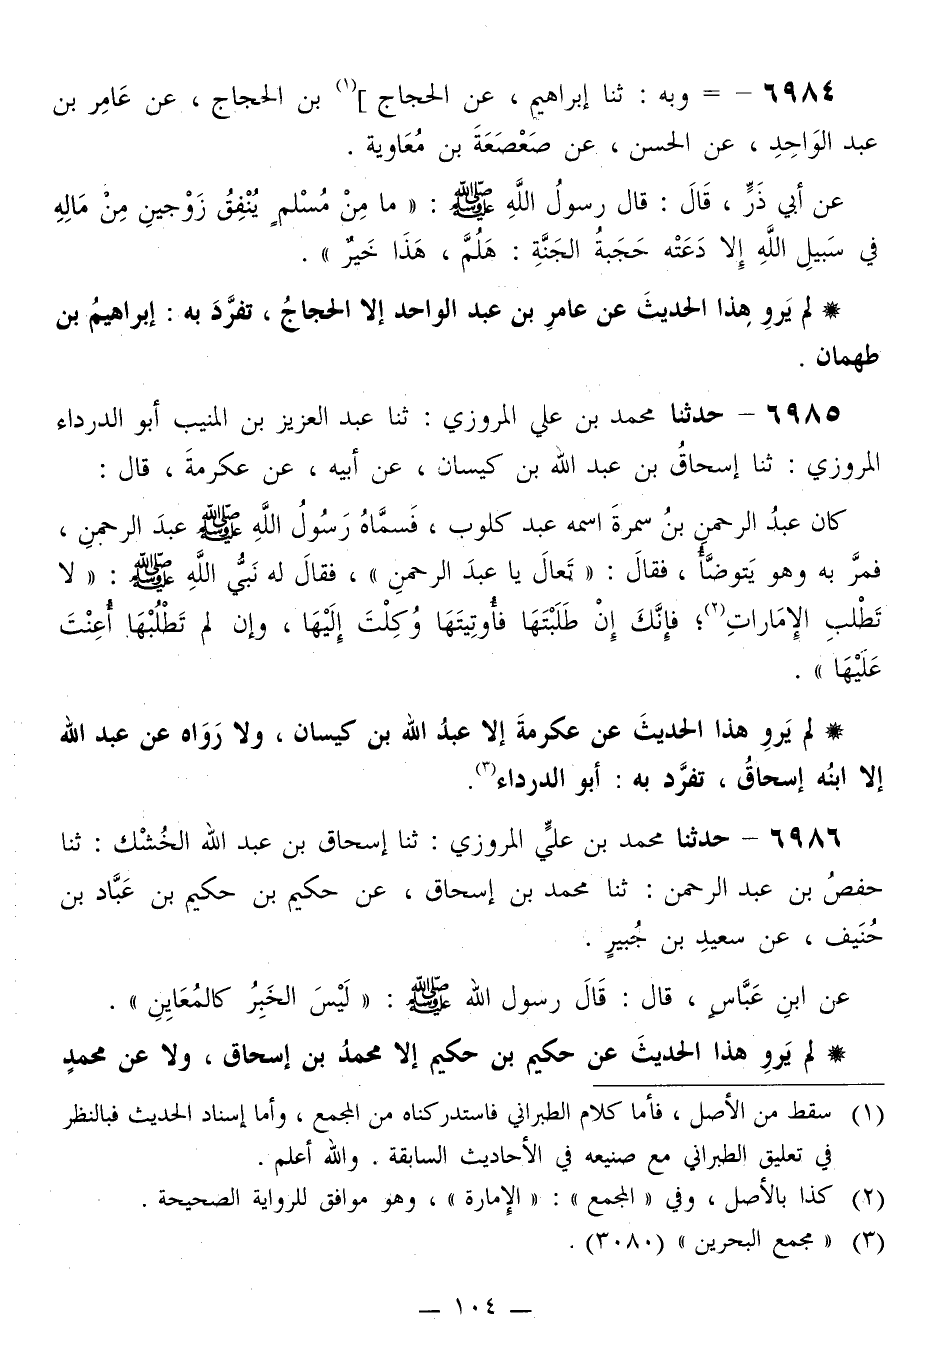 ٦٩٨٤ – = وبه : ثنا إبراهيم ، عن الحجاج ](١) بن الحجاج ، عن عَامِر بن
عبد الوَاحِدِ ، عن الحسن ، عن صَعْصَعَةَ بن مُعَاوية .
عن أبي ذَرٍّ ، قَالَ : قال رسولُ اللَّهِ ﷺ : « ما مِنْ مُسْلمٍ يُنْفِقُ زَوْجينِ مِنْ مَالِهِ
في سَبيلِ اللَّهِ إلا دَعَتْه حَجَبةُ الجَنَّةِ : هَلُمَّ ، هَذَا خَيرٌ » .
* لم يَروِ هذا الحديثَ عن عامرِ بن عبد الواحد إلا الحجاجُ ، تفرَّدَ به : إبراهيمُ بن
طهمان .
٦٩٨٥ – حدثنا محمد بن علي المروزي : ثنا عبد العزيز بن المنيب أبو الدرداء
المروزي : ثنا إسحاقُ بن عبد الله بن كيسان ، عن أبيه ، عن عكرمةَ ، قال :
كان عبدُ الرحمنِ بنُ سمرةَ اسمه عبد كلوب ، فَسمَّاهُ رَسُولُ اللَّهِ ﷺ عبدَ الرحمنِ ،
فمرَّ به وهو يَتوضَّأُ ، فقالَ : « تَعالَ يا عبدَ الرحمنِ » ، فقالَ له نَبيُّ اللَّهِ ﷺ : « لا
تَطْلبِ الإمَاراتِ(٢)؛ فإنَّكَ إنْ طَلَبْتَهَا فأُوتِيتَهَا وُكِلْتَ إلَيْهَا ، وإن لم تَطْلُبْهَا أُعِنْتَ
عَلَيْهَا » .
* لم يَروِ هذا الحديثَ عن عكرمةَ إلا عبدُ الله بن كيسان ، ولا رَوَاه عن عبد الله
إلا ابنُه إسحاقُ ، تفرَّد به : أبو الدرداء(٣).
٦٩٨٦ – حدثنا محمد بن عليٍّ المروزي : ثنا إسحاق بن عبد الله الخُشْك : ثنا
حفصُ بن عبد الرحمن : ثنا محمد بن إسحاق ، عن حكيم بن حكيم بن عَبَّاد بن
حُنَيف ، عن سعيدِ بن جُبيرٍ .
عن ابنِ عَبَّاسٍ ، قال : قَالَ رسول الله ﷺ : « لَيْسَ الخَبرُ كالمُعَاينِ » .
* لم يَروِ هذا الحديثَ عن حكيم بن حكيم إلا محمدُ بن إسحاق ، ولا عن محمدٍ
(١) سقط من الأصل ، فأما كلام الطبراني فاستدركناه من المجمع ، وأما إسناد الحديث فبالنظر
في تعليق الطبراني مع صنيعه في الأحاديث السابقة . والله أعلم .
(٢) كذا بالأصل ، وفي « المجمع » : « الإمارة » ، وهو موافق للرواية الصحيحة .
(٣) « مجمع البحرين » (٣٠٨٠) .
– ١٠٤ –